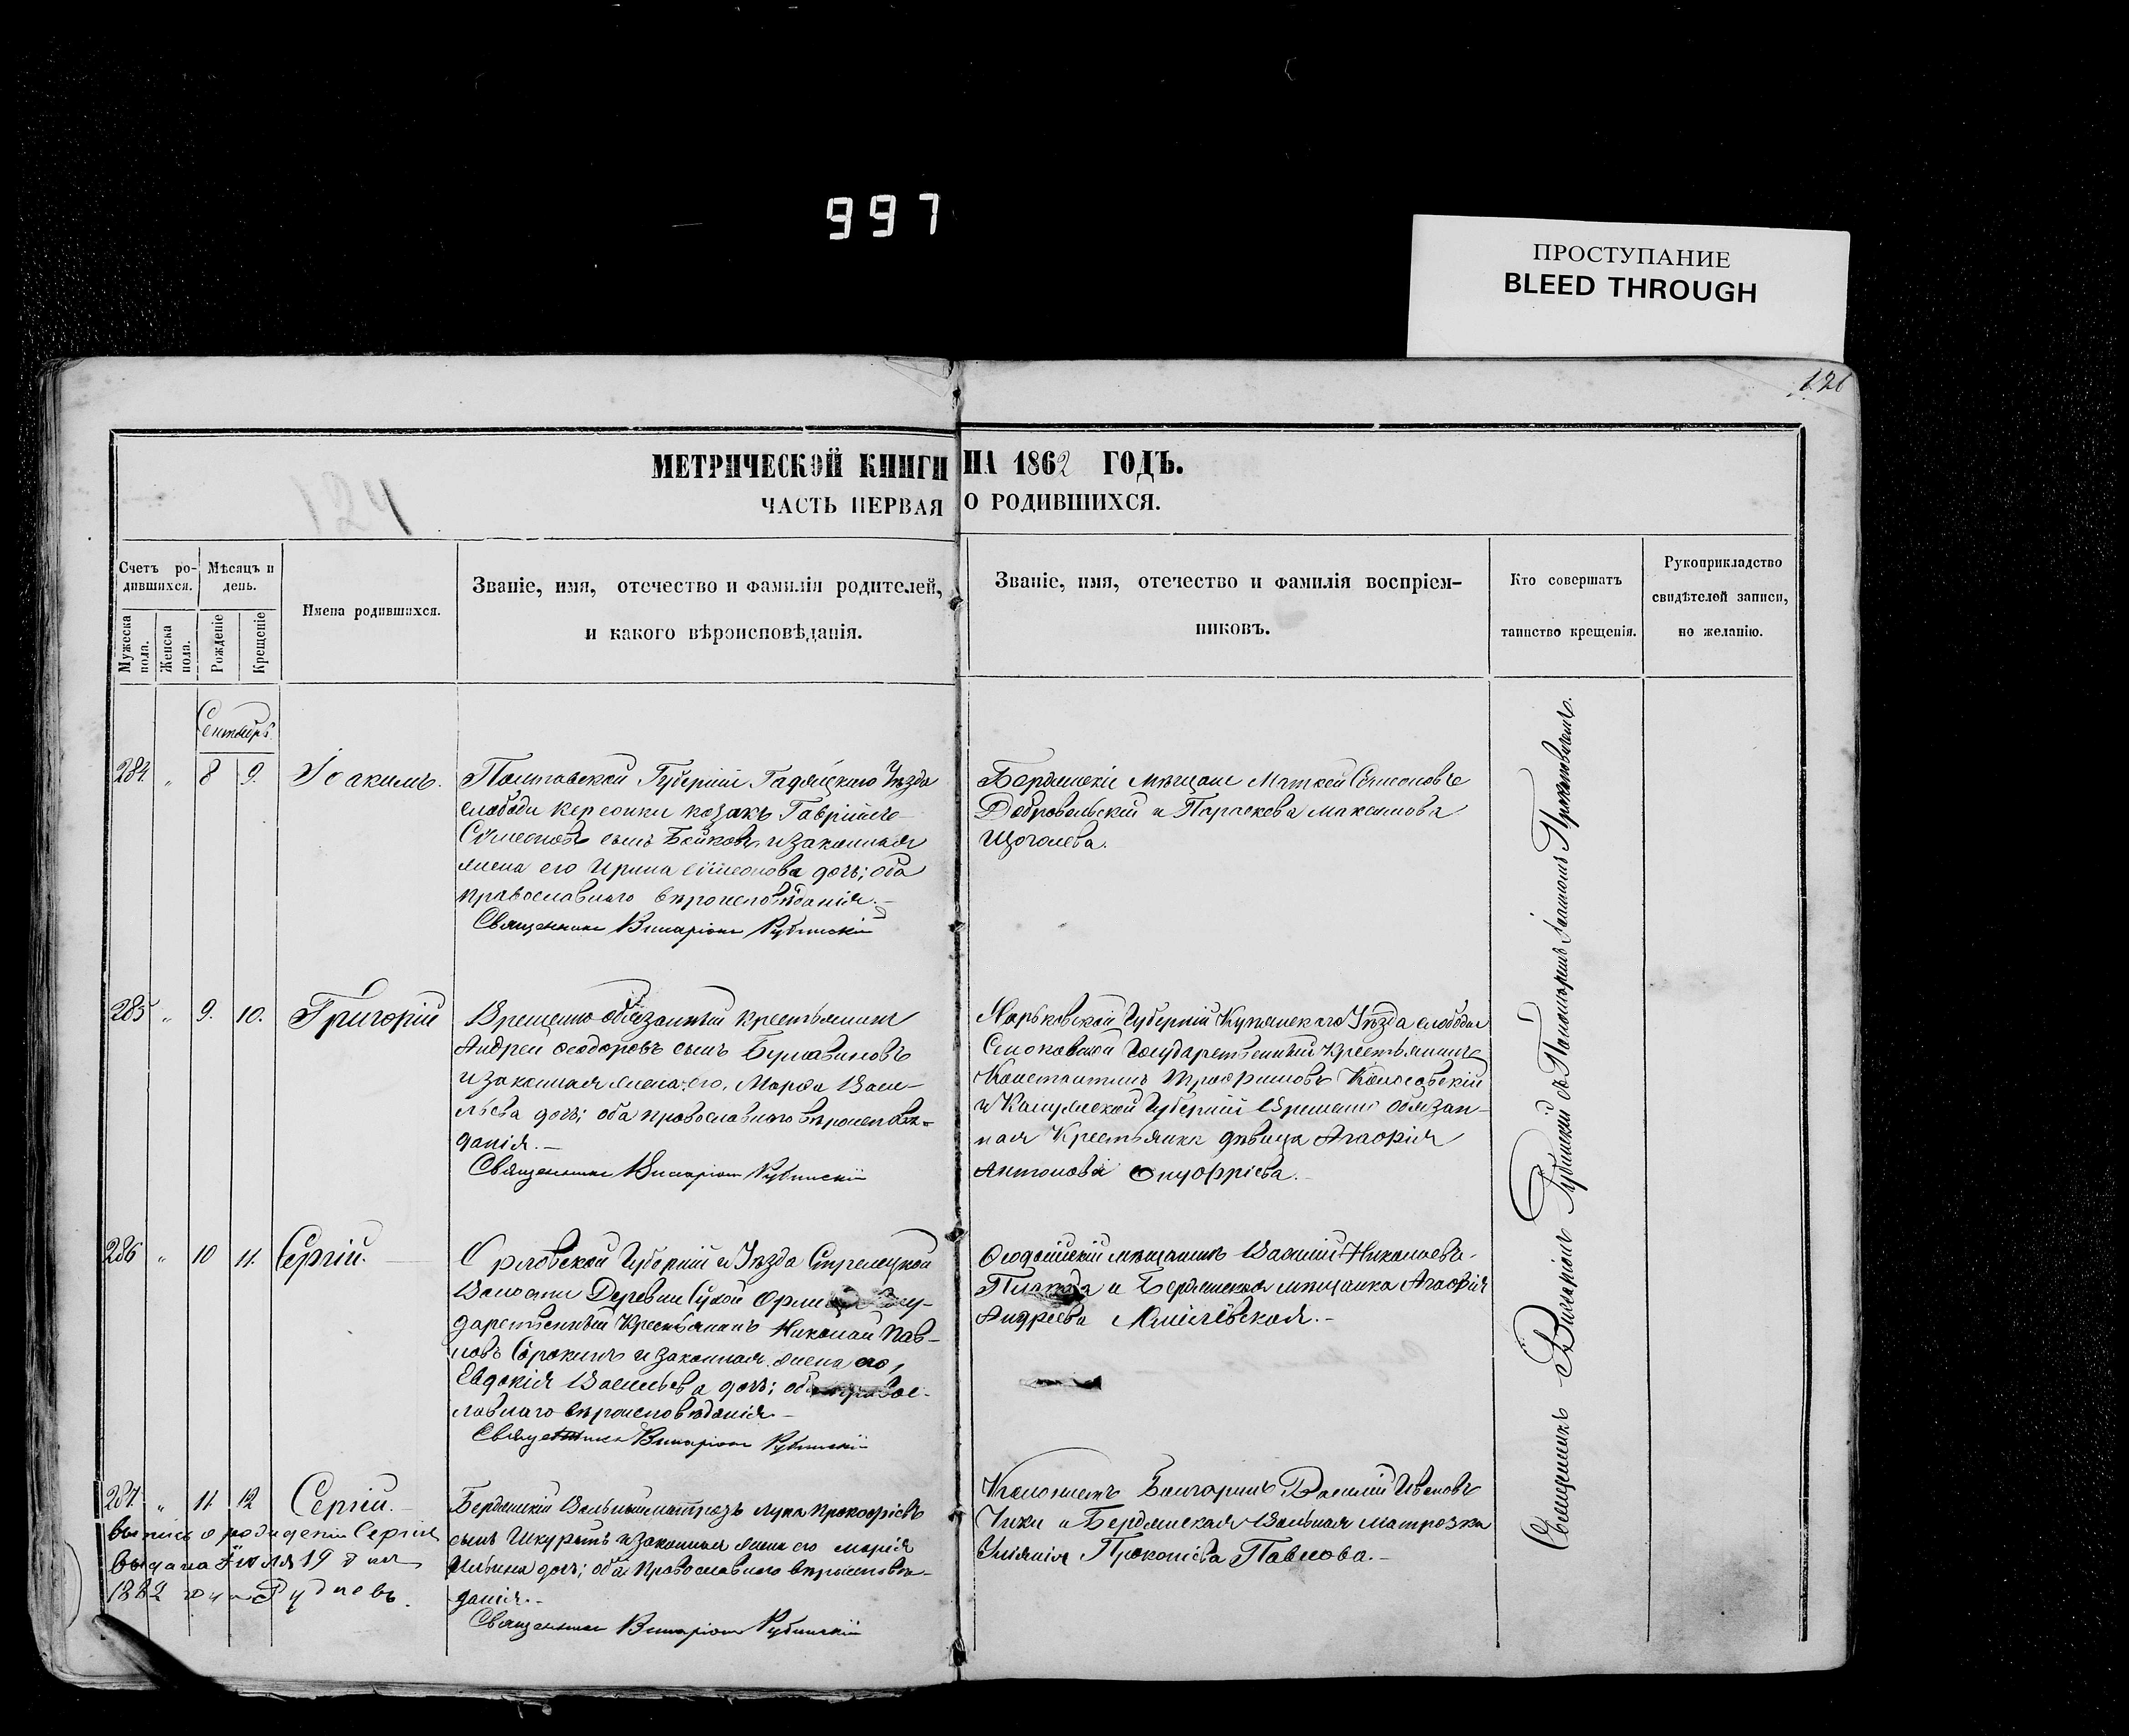 997
ПРОСТУПАНИЕ
BLEED THROUGH
124
МЕТРИЧЕСКОЙ КНИГИ НА 1862 ГОДЪ.
ЧАСТЬ ПЕРВАЯ О РОДИВШИХСЯ.
Счетъ родившихся.
Мужеска пола.
Женска пола.
Мѣсяцъ и день.
Рожденіе
Крещеніе
Имена родившихся.
Званіе, имя, отечество и фамилія родителей,
и какого вѣроисповѣданія.
Званіе, имя, отечество и фамилія воспріем-
никовъ.
Кто совершатъ
таинство крещенія.
Рукоприкладство
свидѣтелей записи,
по желанію.
Сентябрь
284. " 8 9. Іоакимъ.
Полтавской Губерніи Гадяцкаго Уѣзда
слободы козакъ Гавріилъ
Сѵмеоновъ сынъ Бойковъ и законная
жена его Ирина Сѵмеонова дочь; оба
православнаго вѣроисповѣданія.-
Священникъ Виссаріонъ Рубинскій
Бердянскіе мѣщане Маткей Сѵмеоновъ
Добровольскій и Параскева Максимова
Щоголева.
285 " 9. 10. Григорій
Временно-обязанный крестьянинъ
Андрей Ѳеодоровъ сынъ Булавиновъ
и законная жена его, Марѳа Васи-
льева дочь; оба православнаго вѣроисповѣ-
данія.-
Священникъ Виссаріонъ Рубинскій
Харьковской Губерніи Купянскаго Уѣзда слободы
Государственный крестьянинъ
Константинъ Трофимовъ
и Калужской Губерніи временно обязан-
ная крестьянка дѣвица Агаѳія
Антонова Онуфріева.-
286 " 10 11. Сергій.
Орловской Губерніи и Уѣзда Стрелецкой
Волости Деревни Сухой Госу-
дарственный крестьянинъ Николай Пав-
ловъ Сорокинъ и законная жена его,
Евдокія Васильева дочь; оба правос-
лавнаго вѣроисповѣданія.-
Священникъ Виссаріонъ Рубинскій
Ѳеодосійскій мѣщанинъ Василій Николаевъ
и Бердянская мѣщанка Агаѳія
Андреева
287. " 11. 12 Сергій.-
Бердянскій вольный матрозъ Лука Прокофіевъ
сынъ Шкуратъ и законная жена его Марія
Ильина дочь; оба православнаго вѣроисповѣ-
данія.-
Священникъ Виссаріонъ Рубинскій
Колонистъ Болгаринъ Василій Ивановъ
Чики и Бердянская вольная матрозка
Уліянія Прокопіева Павлова.-
выпись о рожденіи Сергія
выдана Іюля 19 дня
1882 года Рудневъ.
Священникъ Виссаріонъ Рубинскій съ Пономаремъ Іоанномъ Прокоповичемъ.